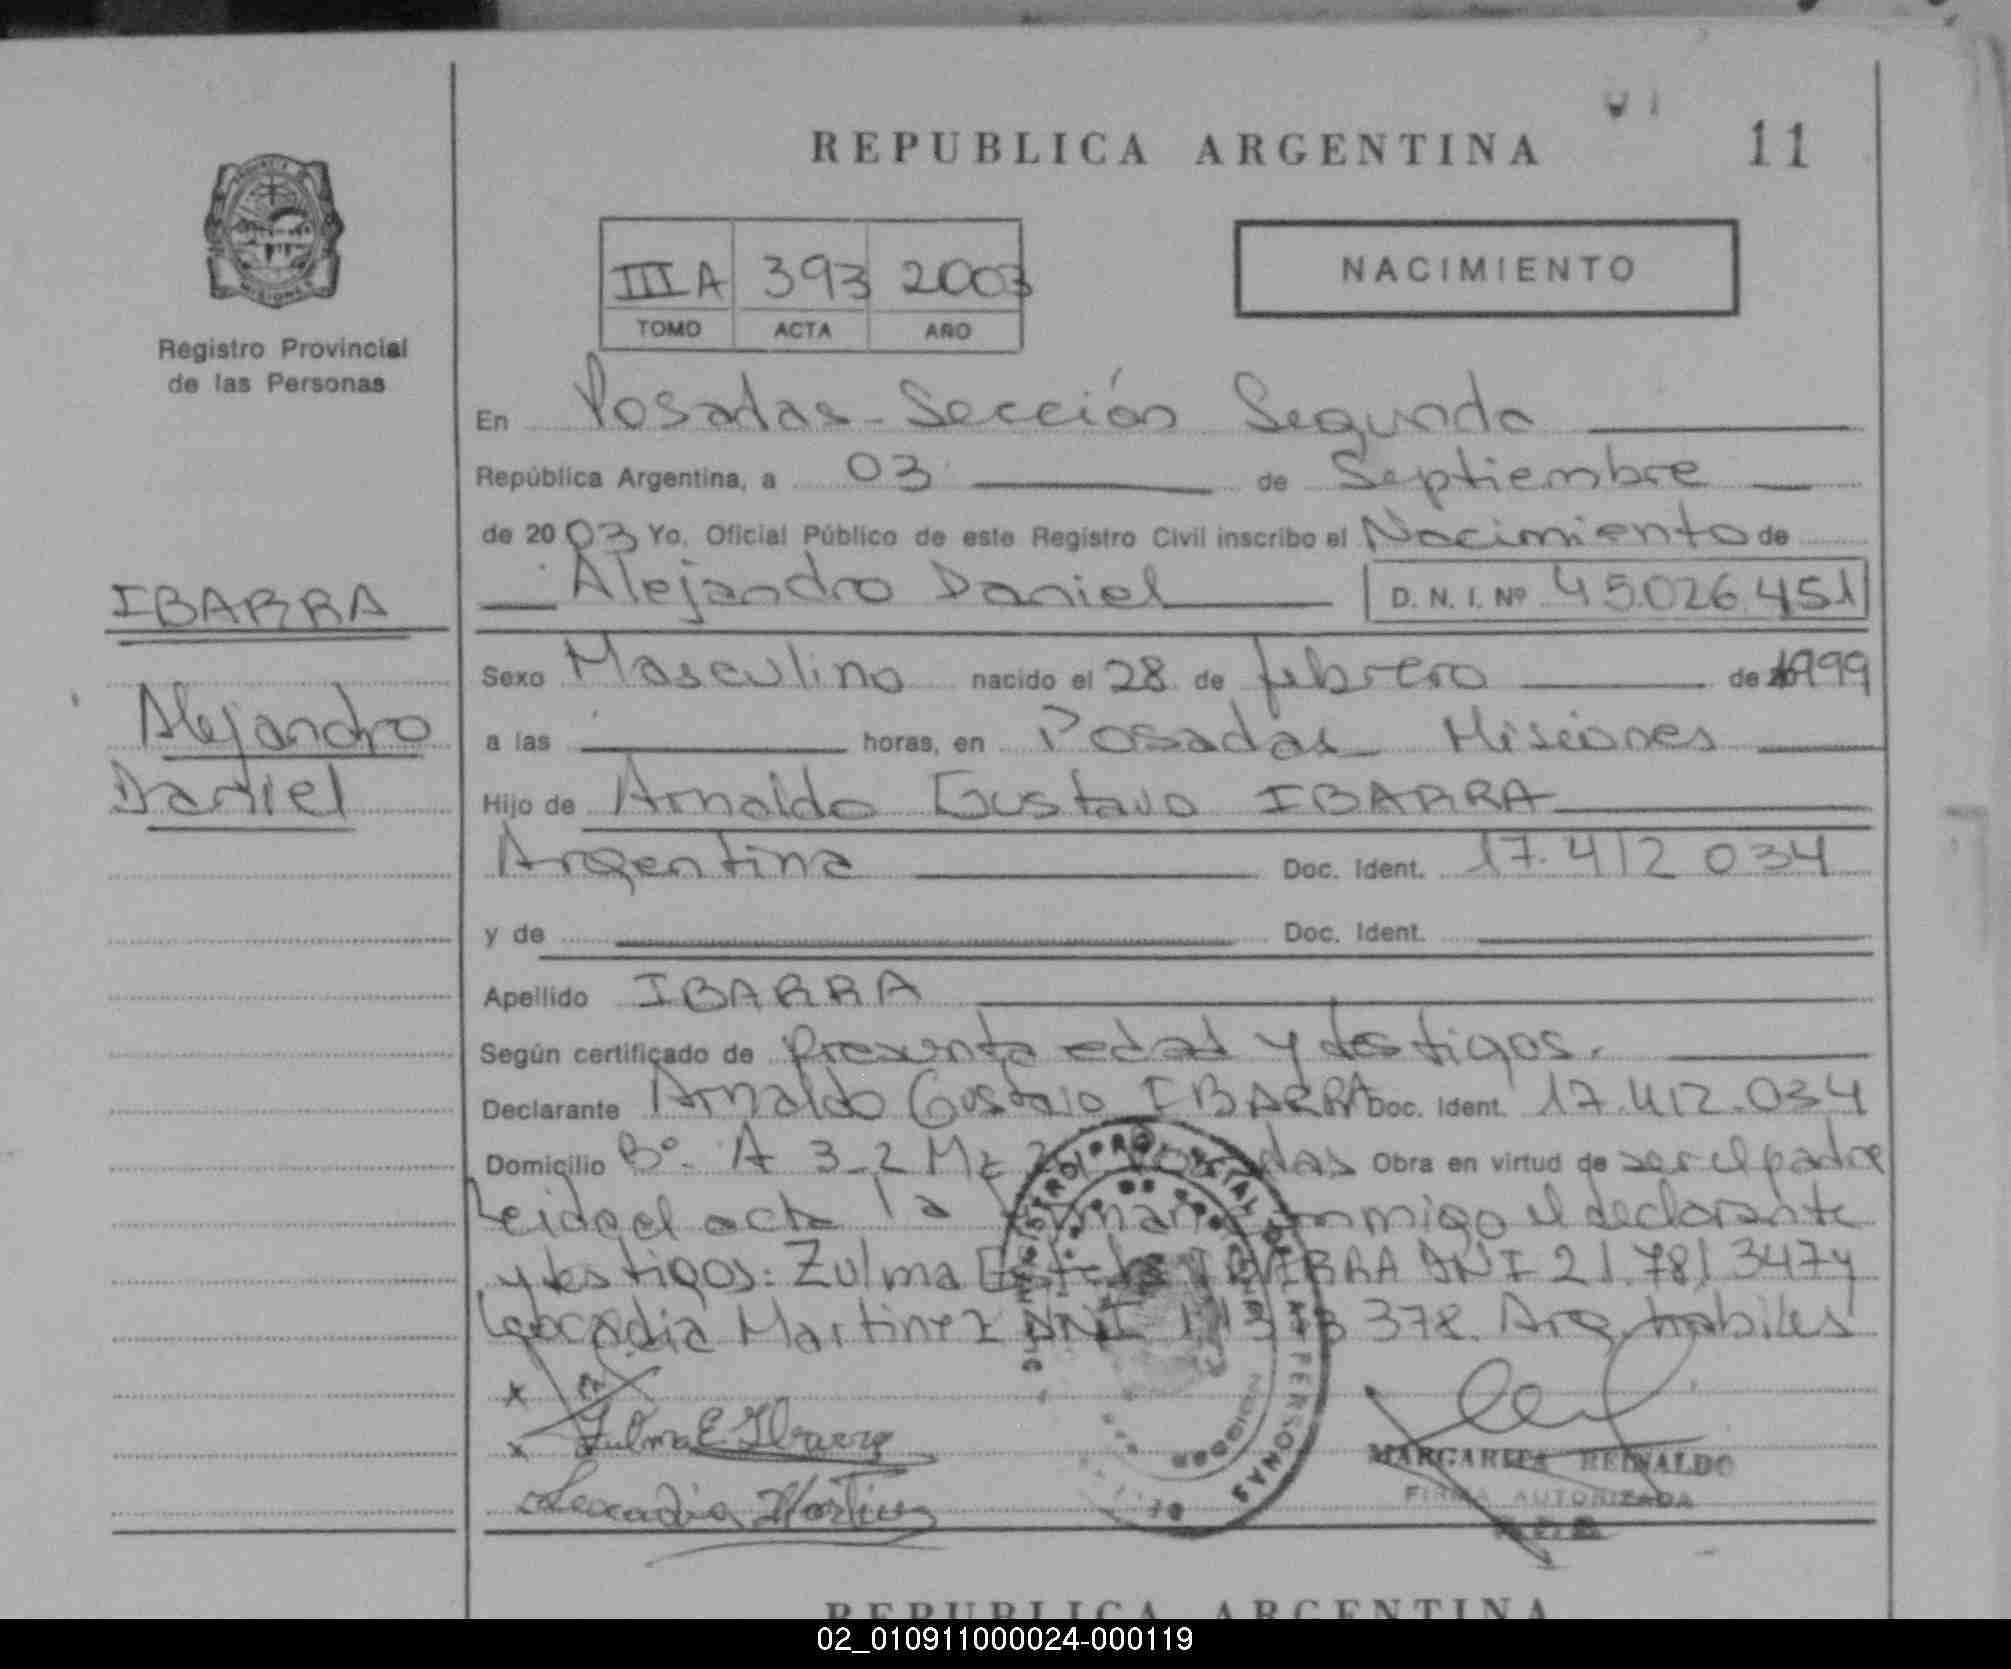 REPUBLICA ARGENTINA
11
PROVINCIA
MISIONES
Registro Provincial
de las Personas
IIIA 393 2003
TOMO ACTA AÑO
NACIMIENTO
En Posadas - Sección Segunda
República Argentina, a 03 de Septiembre
de 2003 Yo, Oficial Público de este Registro Civil inscribo el Nacimiento de
Alejandro Daniel D. N. I. Nº 45.026.451
IBARRA
Alejandro
Daniel
Sexo Masculino nacido el 28 de febrero de 1999
a las horas, en Posadas Misiones
Hijo de Arnaldo Gustavo IBARRA
Argentina Doc. Ident. 17.412.034
y de Doc. Ident.
Apellido IBARRA
Según certificado de presunta edad y testigos.
Declarante Arnaldo Gustavo IBARRA Doc. Ident. 17.412.034
Domicilio Bº. A 3-2 Mz Posadas Obra en virtud de ser el padre
Leida el acta la firman conmigo el declarante
y testigos: Zulma Estela IBARRA DNI 21.781.347 y
Leocadia Martinez DNI 378. Arg. habiles
Zulma E. Ibarra
Leocadia Martinez
MARGARITA REINALDO
FIRMA AUTORIZADA
REPUBLICA ARGENTINA
02_010911000024-000119